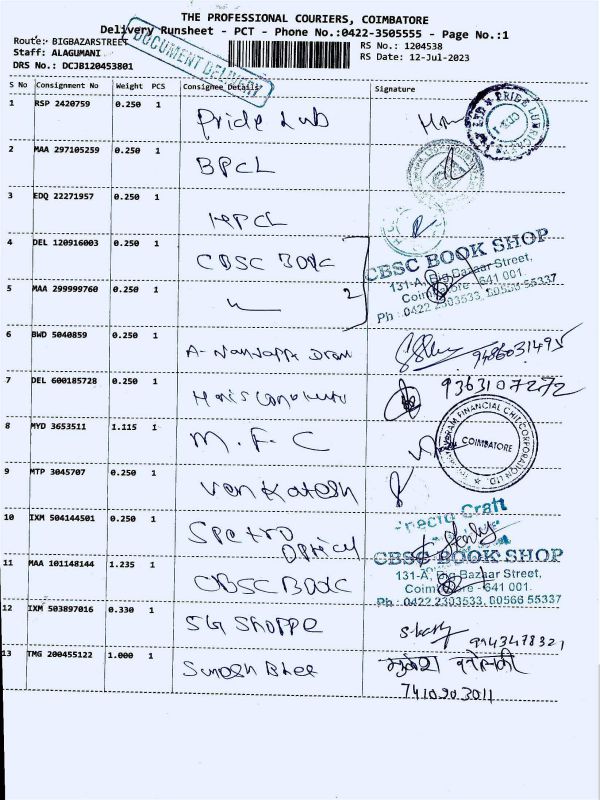 THE PROFESSIONAL COURIERS, COIMBATORE
Delivery Runsheet - PCT - Phone No.:0422-3505555 - Page No.:1
Route:- BIGBAZARSTREET
RS No.: 1204538
Staff: ALAGUMANI
RS Date: 12-Jul-2023
DRS No.: DCJB120453801
DOCUMENT DELIVERY
S No Consignment No Weight PCS Consignee Details Signature
1 RSP 2420759 0.250 1 Pride Lub
2 MAA 297105259 0.250 1 BPCL
3 EDQ 22271957 0.250 1 HPCL
4 DEL 120916003 0.250 1 CBSC Book
CBSC BOOK SHOP
131-A, Big Bazaar Street,
Coimbatore - 641 001.
Ph : 0422 2303533, 80566 55337
5 MAA 299999760 0.250 1 2
6 BWD 5040859 0.250 1 A- Nanjappa 9486031495
7 DEL 600185728 0.250 1 9363107272
8 MYD 3653511 1.115 1 M. F. C
FINANCIAL CHIT CORPORATION LTD
COIMBATORE
9 MTP 3045707 0.250 1 Venkatesh
10 IXM 504144501 0.250 1 Spectro
Optical
Craft
11 MAA 101148144 1.235 1 CBSC Book
CBSC BOOK SHOP
131-A, Big Bazaar Street,
Coimbatore - 641 001.
Ph : 0422 2303533, 80566 55337
12 IXM 503897016 0.330 1 SG Shoppe 9943478321
13 TMG 200455122 1.000 1 Suresh Bhai
7410903011